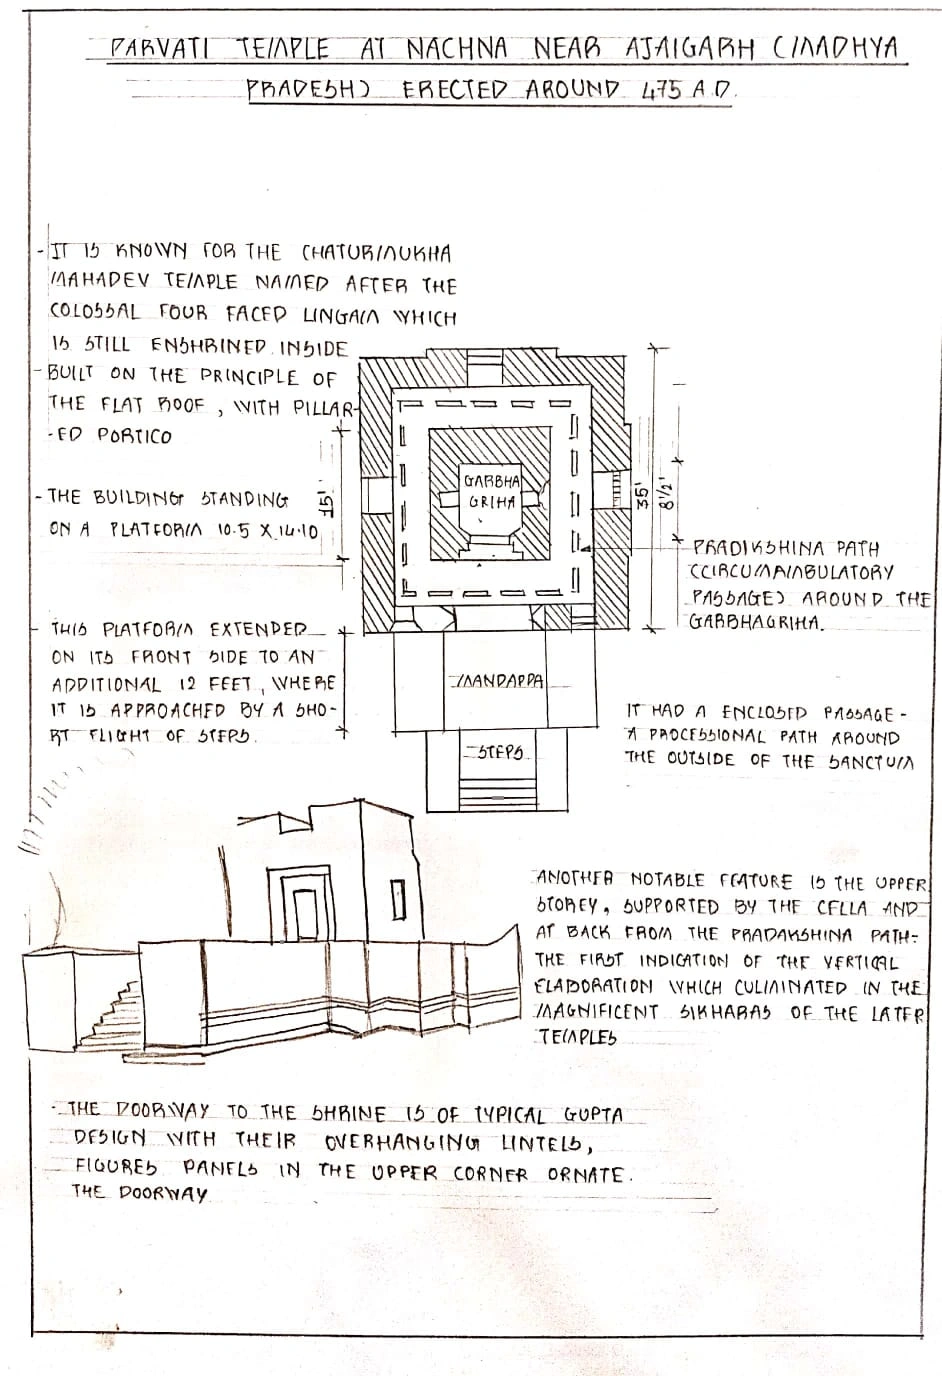 PARVATI TEMPLE AT NACHNA NEAR AJAIGARH (MADHYA
PRADESH) ERECTED AROUND 475 A.D.
- IT IS KNOWN FOR THE CHATURMUKHA
MAHADEV TEMPLE NAMED AFTER THE
COLOSSAL FOUR FACED LINGAM WHICH
IS STILL ENSHRINED INSIDE
- BUILT ON THE PRINCIPLE OF
THE FLAT ROOF, WITH PILLAR-
-ED PORTICO
- THE BUILDING STANDING
ON A PLATFORM 10.5 X 14.10
15'
GARBHA
GRIHA
35'
8 1/2'
PRADIKSHINA PATH
(CIRCUMAMBULATORY
PASSAGE) AROUND THE
GARBHAGRIHA.
- THIS PLATFORM EXTENDED
ON ITS FRONT SIDE TO AN
ADDITIONAL 12 FEET, WHERE
IT IS APPROACHED BY A SHO-
RT FLIGHT OF STEPS.
MANDAPPA
STEPS
IT HAD A ENCLOSED PASSAGE -
A PROCESSIONAL PATH AROUND
THE OUTSIDE OF THE SANCTUM
ANOTHER NOTABLE FEATURE IS THE UPPER
STOREY, SUPPORTED BY THE CELLA AND
AT BACK FROM THE PRADAKSHINA PATH-
THE FIRST INDICATION OF THE VERTICAL
ELABORATION WHICH CULMINATED IN THE
MAGNIFICENT SIKHARAS OF THE LATER
TEMPLES
- THE DOORWAY TO THE SHRINE IS OF TYPICAL GUPTA
DESIGN WITH THEIR OVERHANGING LINTELS,
FIGURES PANELS IN THE UPPER CORNER ORNATE.
THE DOORWAY